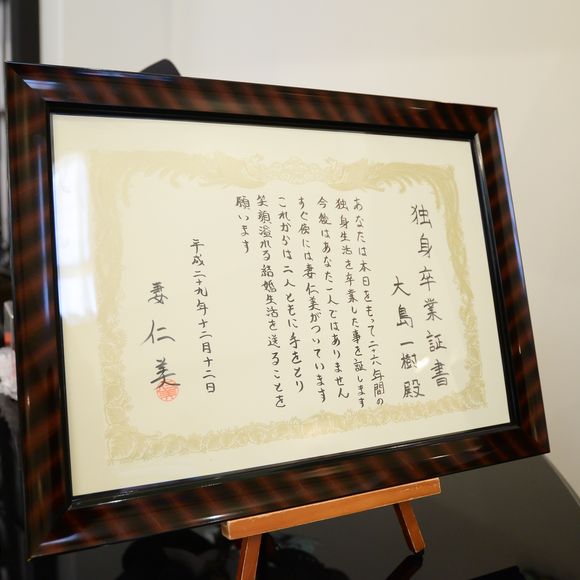 独身卒業証書
大島一樹殿
あなたは本日をもって二十六年間の
独身生活を卒業した事を証します
今後はあなた一人ではありません
すぐ傍には妻仁美がついています
これからは二人ともに手をとり
笑顔溢れる結婚生活を送ることを
願います
平成二十九年十二月十二日
妻仁美